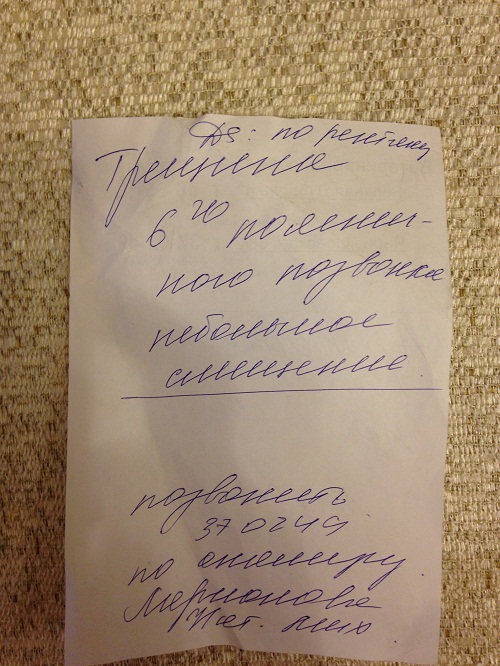 Ds: по рентгену
Трещина
6го пояснич-
ного позвонка
небольшое
смещение.
позвонить
370249
по
Нат.